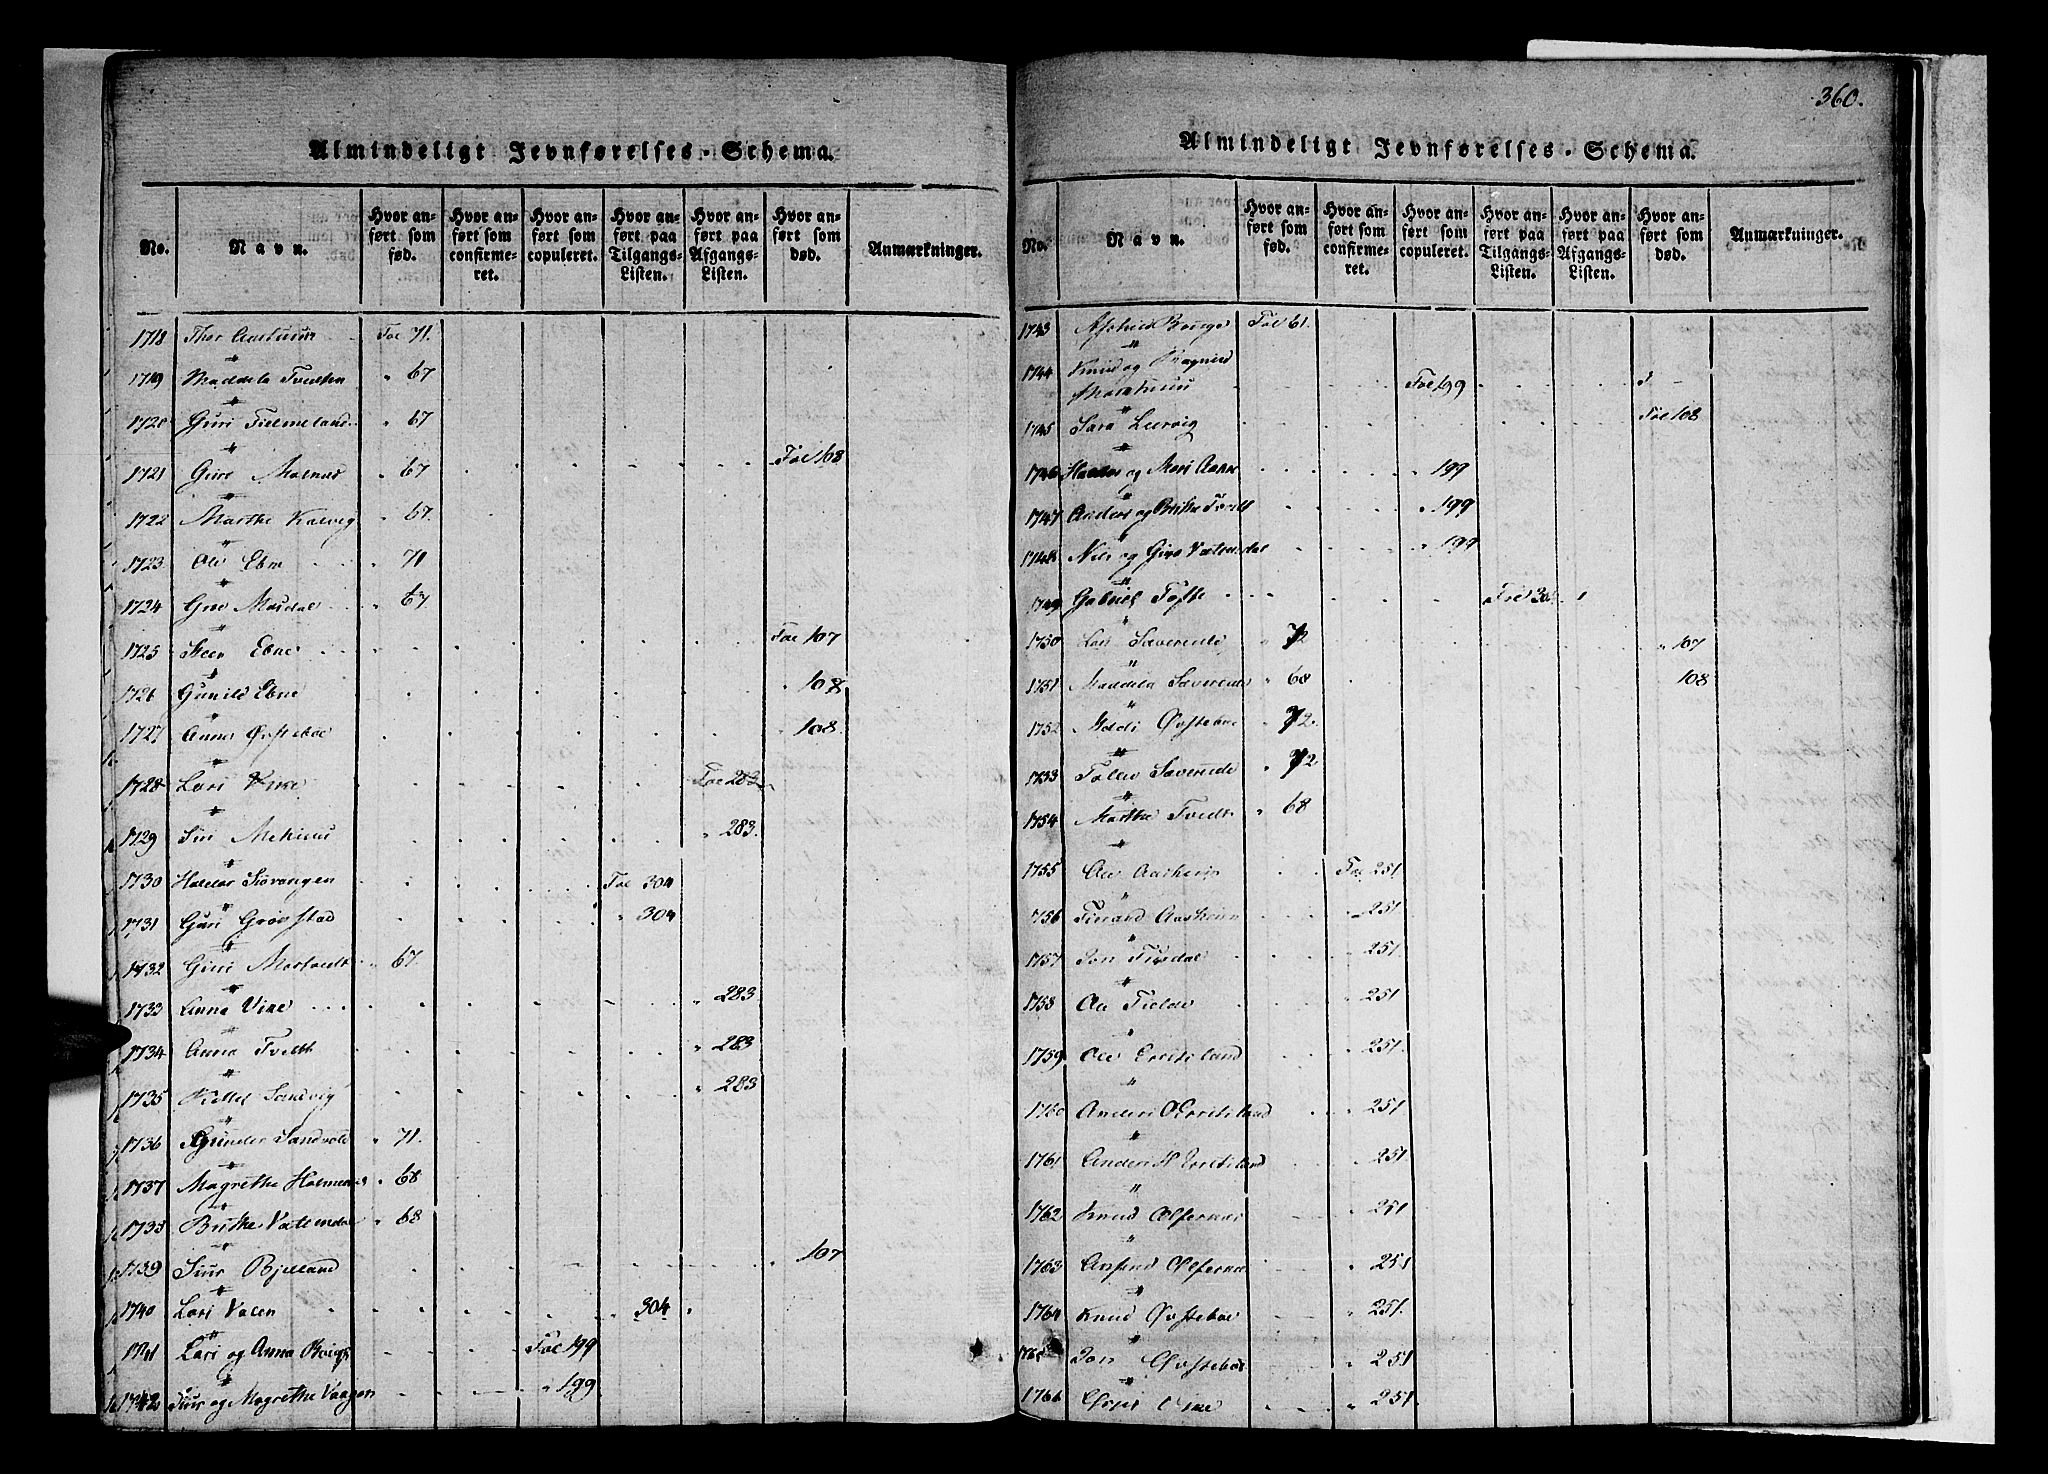 Almindeligt Jevnførelses-Schema.
No.
Navn.
Hvor anført som fød.
Hvor anført som confirmeret.
Hvor anført som copuleret.
Hvor anført paa Tilgangs-Listen.
Hvor anført paa Afgangs-Listen.
Hvor anført som død.
Anmærkninger.
1718 Thor Fol 71.
1719 Maddela " 67
1720 Guri Fielmeland " 67
1721 Guro " 67 Fol 108
1722 Marthe Kalvig " 67.
1723 Ole Ebne " 71
1724 Gro Mosdal " 67
1725 Steen Ebne Fol 107
1726 Gunild Ebne " 108
1727 Anna Øvstebøe " 108.
1728 Lars Vike Fol 283
1729 Siri " 283.
1730 Fol 304
1731 Guri Grøvstad " 304
1732 Guri " 67.
1733 Anna Vike " 283.
1734 Anna Tvedt " 283
1735 Kittel Sandvig " 283
1736 Gunder Sandvold " 71.
1737 Magrethe " 68
1738 Brithe Vattendal " 68
1739 Siur Bjelland " 107
1740 Lars Valen " 304
1741 Lars og Anna Fol 199
1742 Siur og Magrethe Vaagen " 199
360.
Almindeligt Jevnførelses-Schema.
No.
Navn.
Hvor anført som fød.
Hvor anført som confirmeret.
Hvor anført som copuleret.
Hvor anført paa Tilgangs-Listen.
Hvor anført paa Afgangs-Listen.
Hvor anført som død.
Anmærkninger.
1743 Fol 61.
1744 Knud og Fol 199
1745 Sara Lervig Fol 108
1746 og " 199
1747 Anders og Brithe Tvedt " 199
1748 Niels og Giro Vatendal " 199
1749 Gabriel Tofte Fol
1750 Lars Saverede " 72 " 107
1751 Maddela Saverede " 68 108
1752 Øvstebøe " 72.
1753 Tollev Saverede " 72
1754 Marthe Tvedt " 68
1755 Ole Fol 251
1756 " 251
1757 Jon " 251
1758 Ole Fielde " 251
1759 Ole Erritsland " 251.
1760 Anders O Erritsland " 251
1761 Anders H Erritsland " 251
1762 Knud " 251
1763 " 251
1764 Knud Øvstebøe " 251
1765 Jon Øvstebøe " 251
1766 Vike " 251